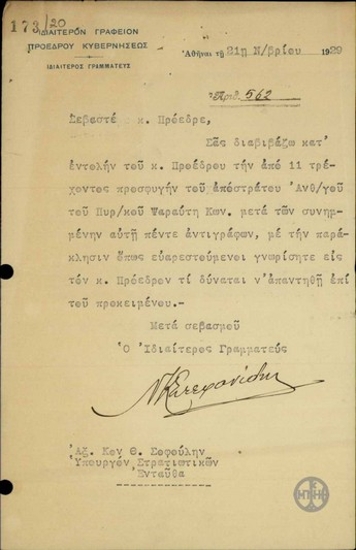 173/20
ΙΔΙΑΙΤΕΡΟΝ ΓΡΑΦΕΙΟΝ
ΠΡΟΕΔΡΟΥ ΚΥΒΕΡΝΗΣΕΩΣ
ΙΔΙΑΙΤΕΡΟΣ ΓΡΑΜΜΑΤΕΥΣ
Ἀθῆναι τῇ 21ῃ Ν/βρίου 1929
Ἀριθ. 562
Σεβαστέ κ. Πρόεδρε,
Σᾶς διαβιβάζω κατ'
ἐντολήν τοῦ κ. Προέδρου τήν ἀπό 11 τρέ-
χοντος προσφυγήν τοῦ ἀπόστράτου Ἀνθ/γοῦ
τοῦ Πυρ/κοῦ Ψαραύτη Κων. μετά τῶν συνημ-
μένην αὐτῇ πέντε ἀντιγράφων, μέ τήν παρά-
κλησιν ὅπως εὐαρεστούμενοι γνωρίσητε εἰς
τόν κ. Πρόεδρον τί δύναται ν'ἀπαντηθῇ ἐπί
τοῦ προκειμένου.-
Μετά σεβασμοῦ
Ὁ Ἰδιαίτερος Γραμματεύς
Ἀξ. Κον Θ. Σοφούλην
Ὑπουργόν Στρατιωτικῶν
Ἐνταῦθα